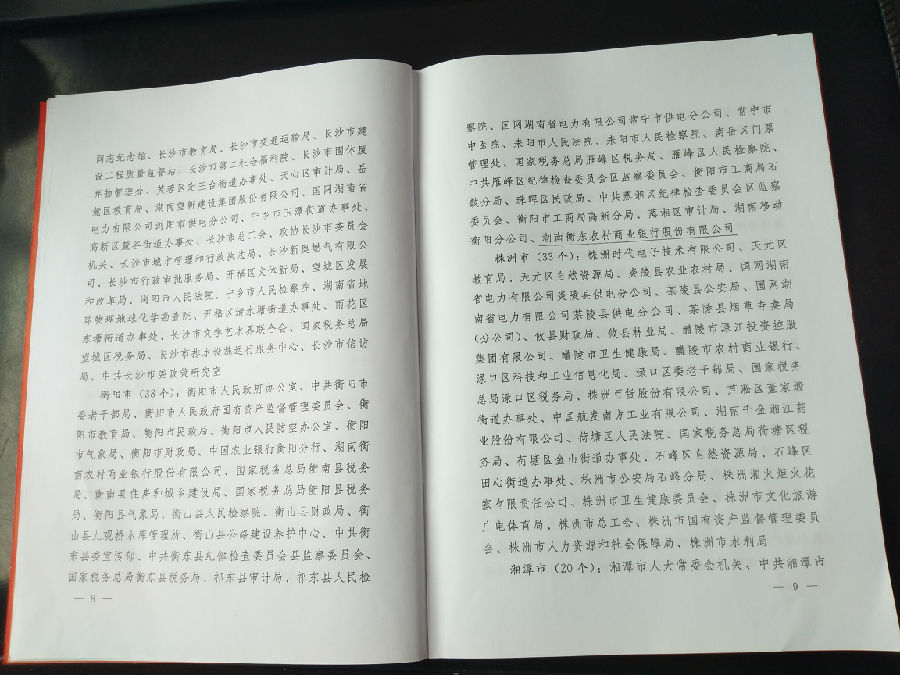 同志纪念馆、长沙市教育局、长沙市交通运输局、长沙市建
设工程质量监督站、长沙市第二社会福利院、长沙市固体废
弃物管理处、芙蓉区定王台街道办事处、天心区审计局、岳
麓区教育局、湖南望新建设集团股份有限公司、国网湖南省
电力有限公司浏阳市供电分公司、宁乡市玉潭街道办事处、
高新区麓谷街道办事处、长沙市总工会、政协长沙市委员会
机关、长沙市城市管理和行政执法局、长沙新奥燃气有限公
司、长沙市行政审批服务局、开福区交体新局、望城区发展
和改革局、浏阳市人民法院、宁乡市人民检察院、湖南省地
球物理地球化学勘查院、开福区清水塘街道办事处、雨花区
东塘街道办事处、长沙市文学艺术界联合会、国家税务总局
望城区税务局、长沙市排水设施运行服务中心、长沙市信访
局、中共长沙市委政策研究室
衡阳市（38个）：衡阳市人民政府办公室、中共衡阳市
委老干部局、衡阳市人民政府国有资产监督管理委员会、衡
阳市教育局、衡阳市民政局、衡阳市人民防空办公室、衡阳
市气象局、衡阳市财政局、中国农业银行衡阳分行、湖南衡
南农村商业银行股份有限公司、国家税务总局衡南县税务
局、衡南县住房和城乡建设局、国家税务总局衡阳县税务
局、衡阳县气象局、衡山县人民检察院、衡山县财政局、衡
山县九观桥水库管理所、衡山县公路建设养护中心、中共衡
东县委宣传部、中共衡东县纪律检查委员会县监察委员会、
国家税务总局衡东县税务局、祁东县审计局、祁东县人民检
— 8 —
察院、国网湖南省电力有限公司常宁市供电分公司、常宁市
中医院、耒阳市人民法院、耒阳市人民检察院、南岳区门票
管理处、国家税务总局雁峰区税务局、雁峰区人民检察院、
中共雁峰区纪律检查委员会区监察委员会、衡阳市工商局石
鼓分局、珠晖区民政局、中共蒸湘区纪律检查委员会区监察
委员会、衡阳市工商局高新分局、蒸湘区审计局、湖南移动
衡阳分公司、湖南衡东农村商业银行股份有限公司
株洲市（33个）：株洲时代电子技术有限公司、天元区
教育局、天元区自然资源局、炎陵县农业农村局、国网湖南
省电力有限公司炎陵县供电分公司、茶陵县公安局、国网湖
南省电力有限公司茶陵县供电分公司、茶陵县烟草专卖局
（分公司）、攸县财政局、攸县林业局、醴陵市渌江投资控股
集团有限公司、醴陵市卫生健康局、醴陵市农村商业银行、
渌口区科技和工业信息化局、渌口区委老干部局、国家税务
总局渌口区税务局、株洲千金药业股份有限公司、芦淞区董家塅
街道办事处、中国航发南方工业有限公司、湖南千金湘江药
业股份有限公司、荷塘区人民法院、国家税务总局荷塘区税
务局、荷塘区金山街道办事处、石峰区自然资源局、石峰区
田心街道办事处、株洲市公安局石峰分局、株洲湘火炬火花
塞有限责任公司、株洲市卫生健康委员会、株洲市文化旅游
广电体育局、株洲市总工会、株洲市国有资产监督管理委员
会、株洲市人力资源和社会保障局、株洲市水利局
湘潭市（20个）：湘潭市人大常委会机关、中共湘潭市
— 9 —